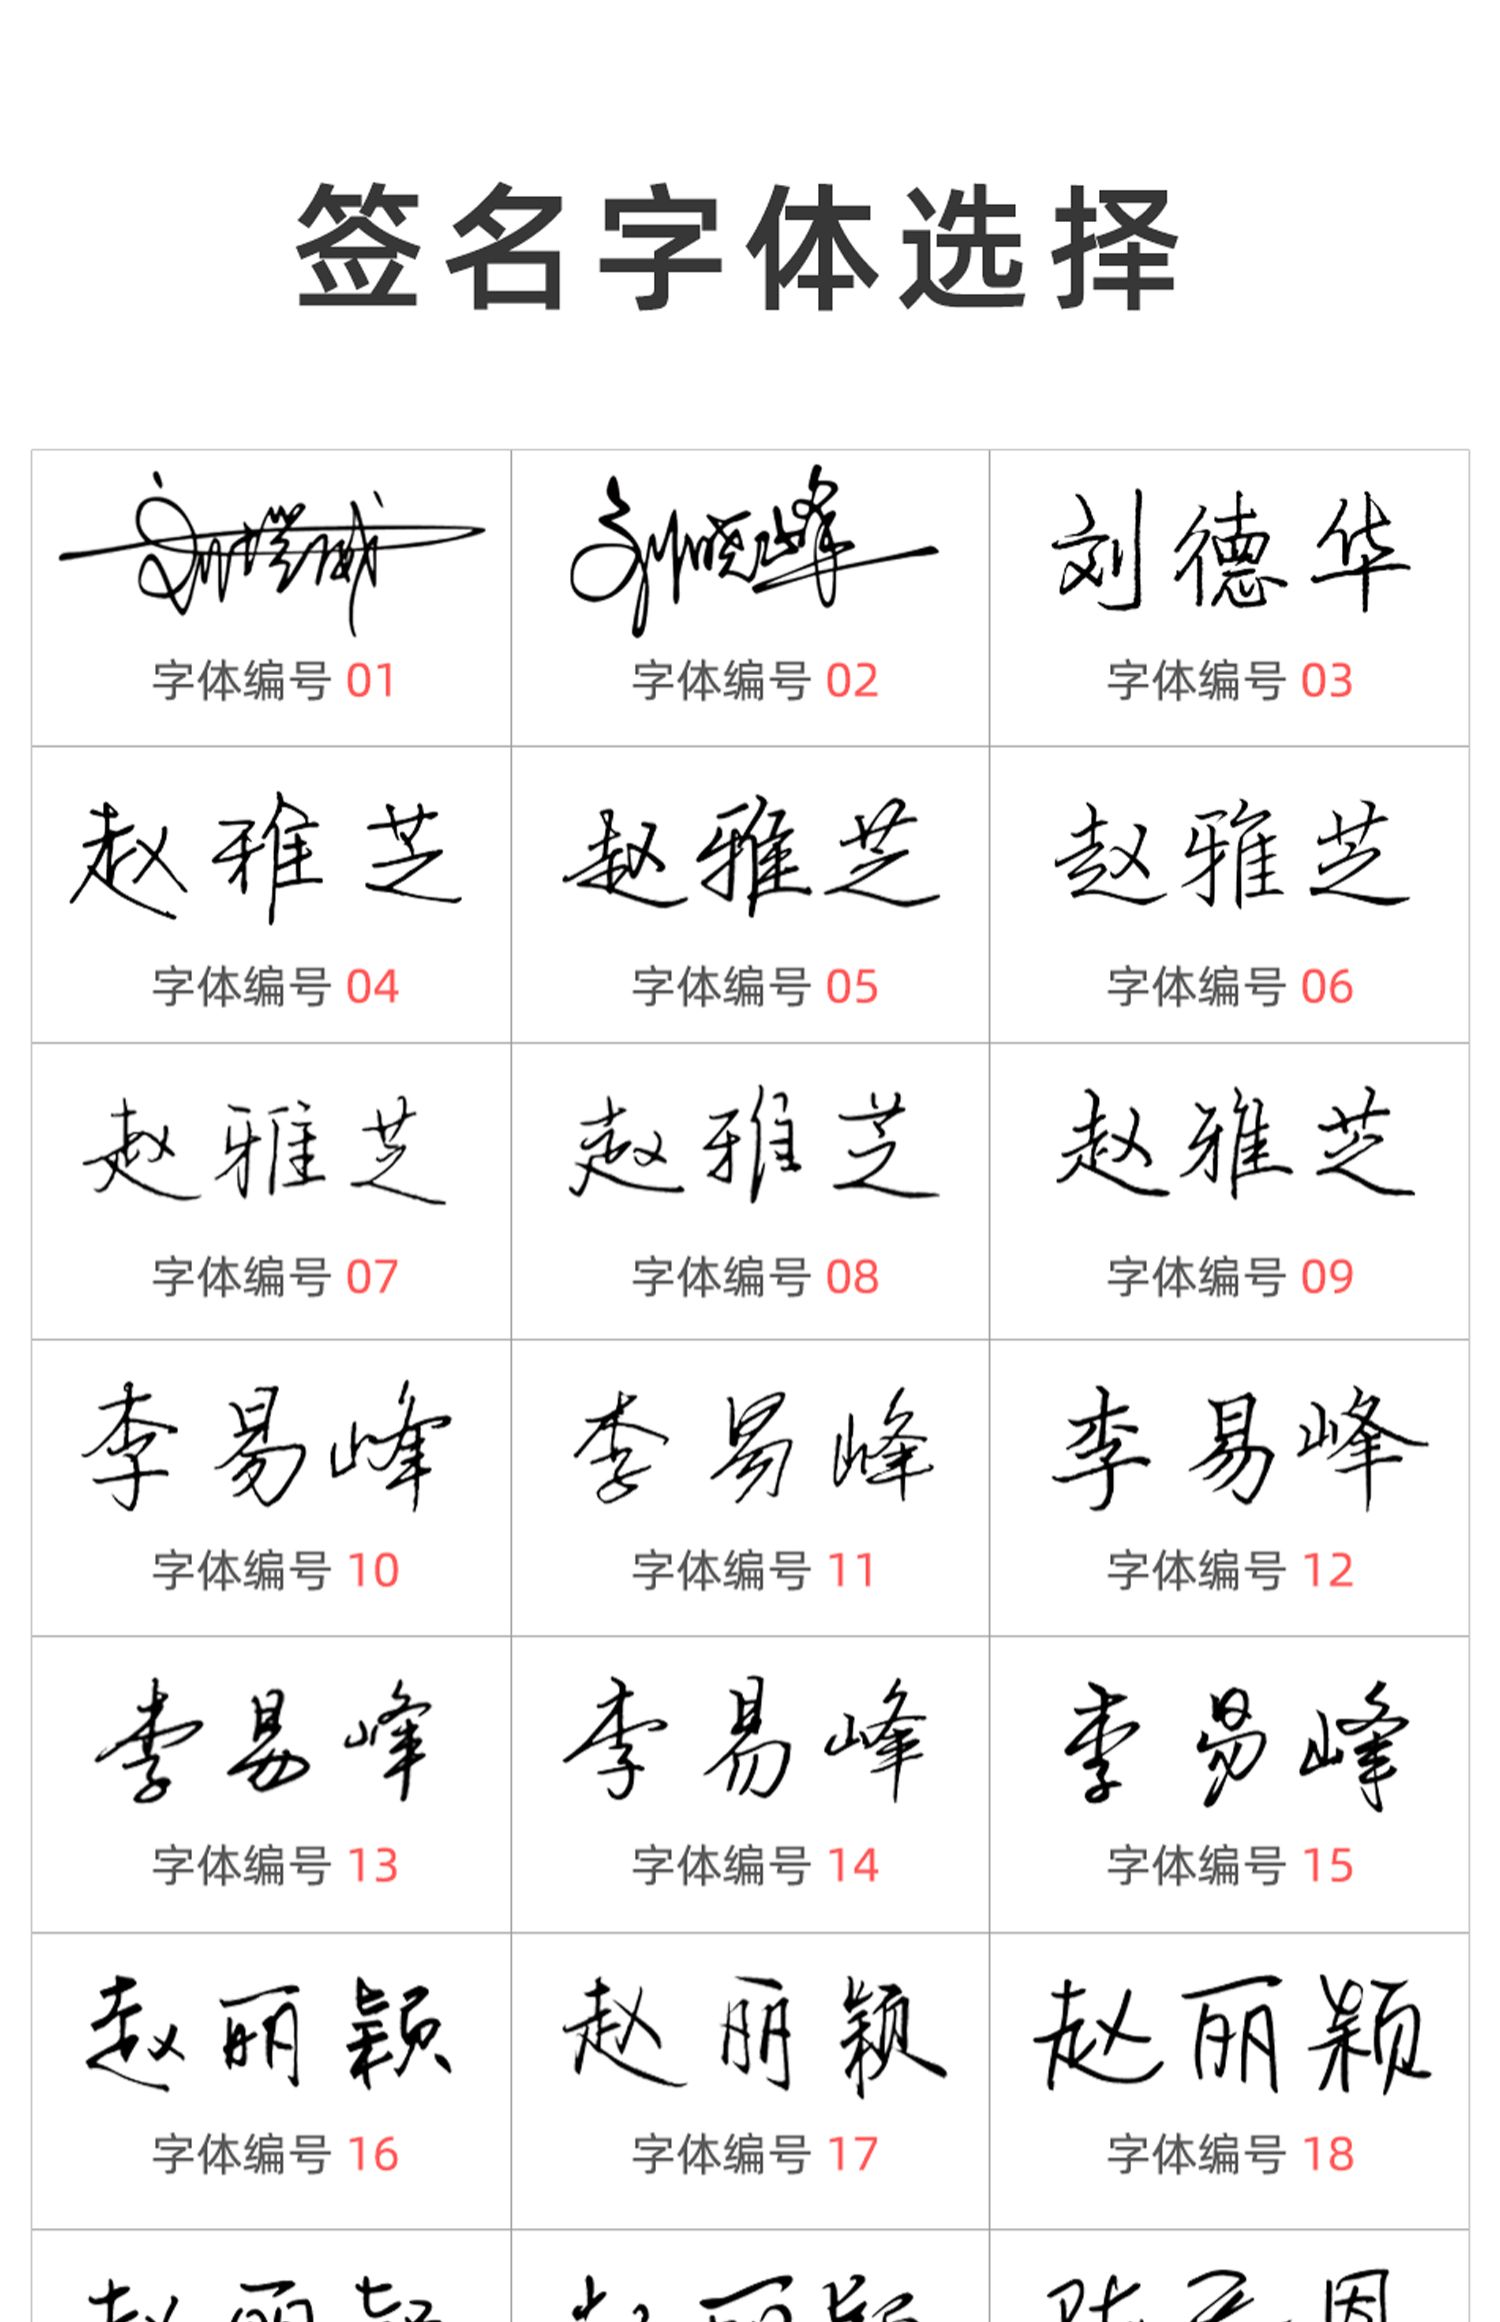 签名字体选择
刘德华
字体编号 01
字体编号 02
字体编号 03
赵雅芝 赵雅芝 赵雅芝
字体编号 04
字体编号 05
字体编号 06
赵雅芝 赵雅芝 赵雅芝
字体编号 07
字体编号 08
字体编号 09
李易峰 李易峰 李易峰
字体编号 10
字体编号 11
字体编号 12
李易峰 李易峰 李易峰
字体编号 13
字体编号 14
字体编号 15
赵丽颖 赵丽颖 赵丽颖
字体编号 16
字体编号 17
字体编号 18